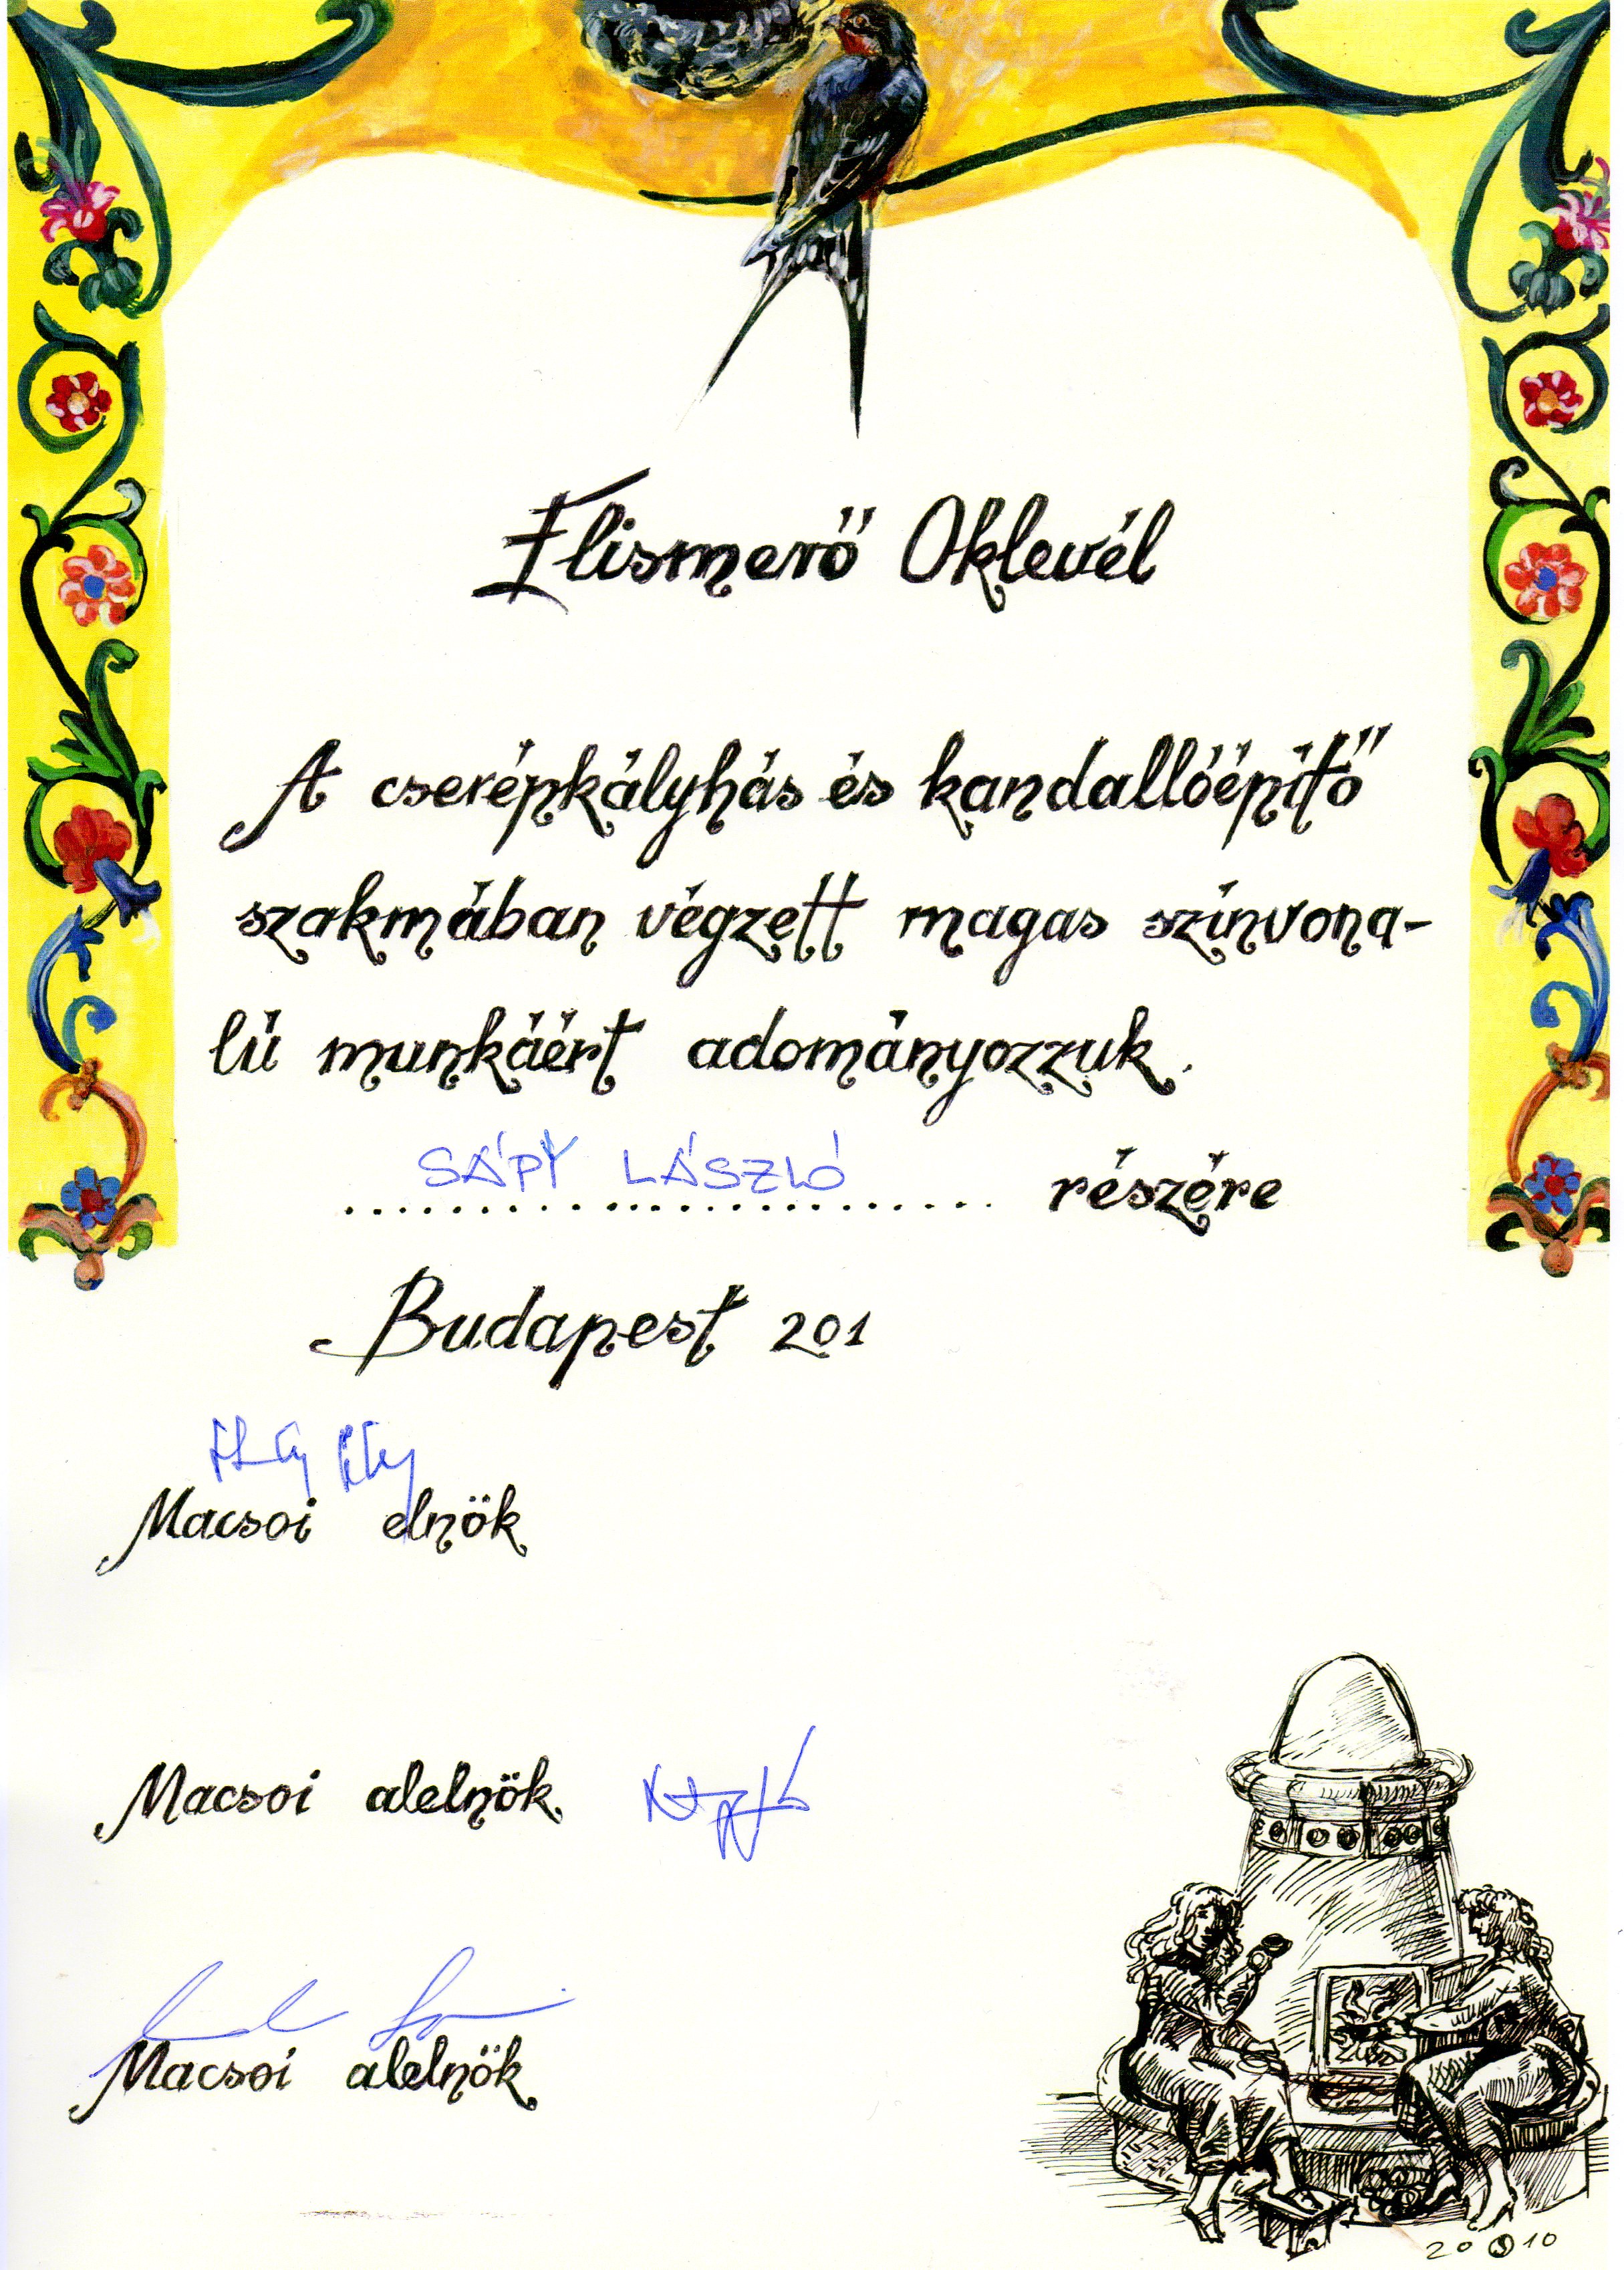 Elismerő Oklevél
A cserépkályhás és kandallóépítő
szakmában végzett magas színvona-
lú munkáért adományozzuk.
SÁPY LÁSZLÓ
........................... részére
Budapest 201
Macsoi elnök
Macsoi alelnök
Macsoi alelnök
20 10